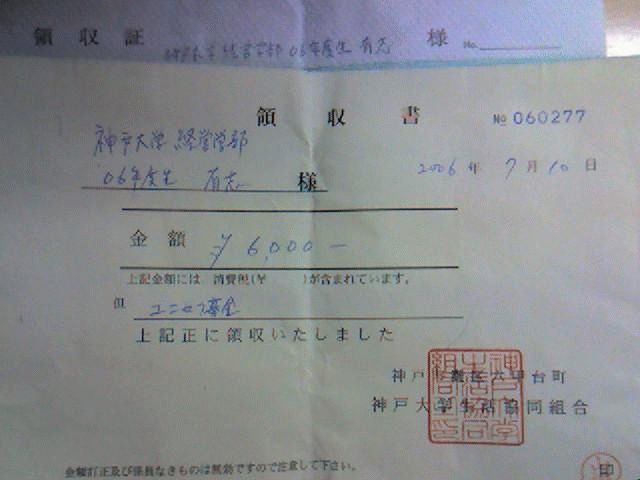 領収証 神戸大学経営学部 06年度生 有志 様 No.
領収書 No 060277
神戸大学 経営学部
06年度生 有志 様
2006年7月10日
金額 ¥6,000-
上記金額には 消費税(¥ )が含まれています。
但 ユニセフ募金
上記正に領収いたしました
神戸市灘区六甲台町
神戸大学生活協同組合
金額訂正及び係員なきものは無効ですので注意して下さい。
印